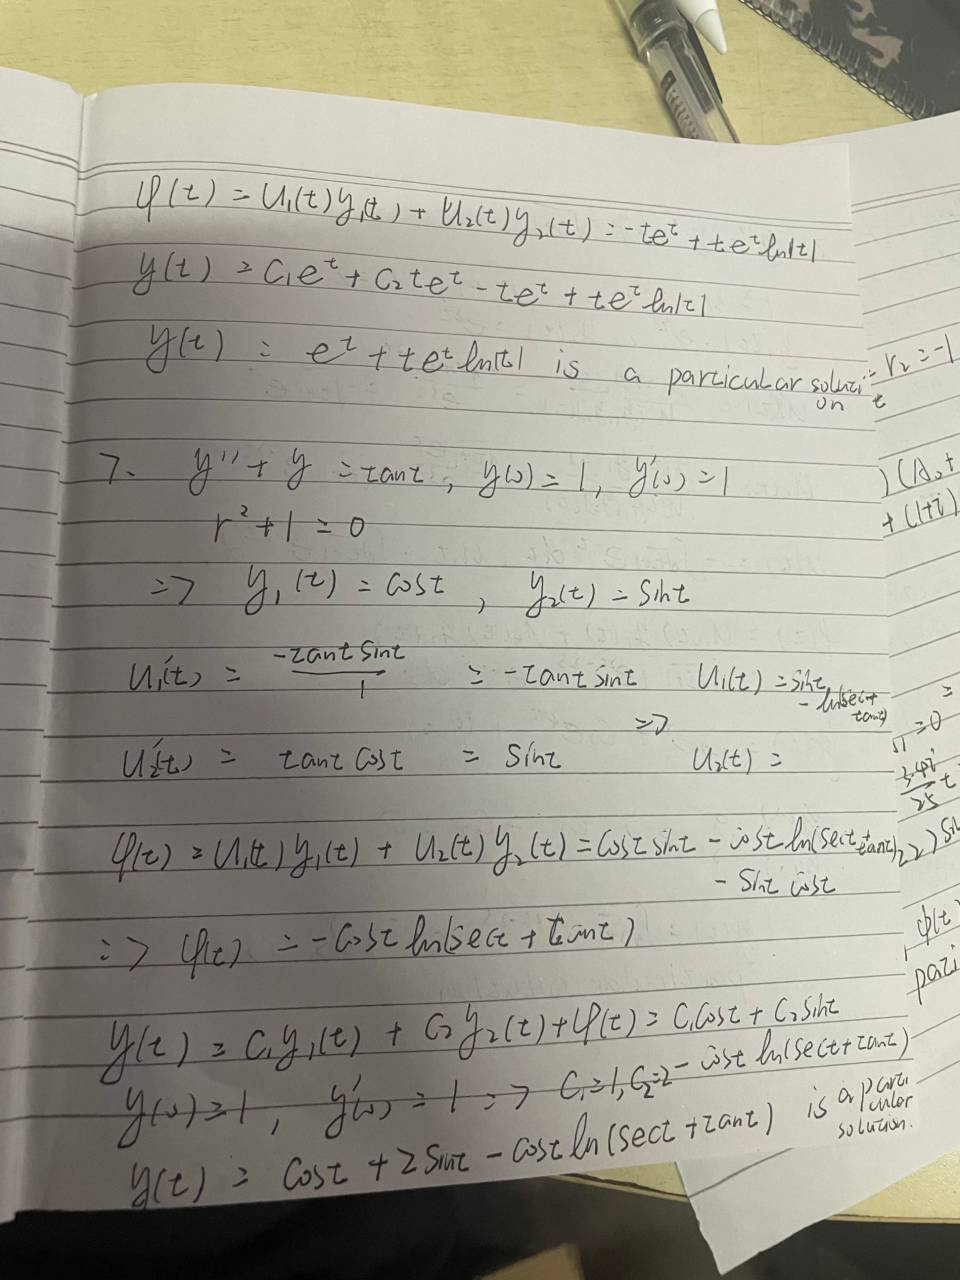 φ(t) = u₁(t)y₁(t) + u₂(t)y₂(t) = -te^t + te^t ln|t|
y(t) = c₁e^t + c₂te^t - te^t + te^t ln|t|
y(t) = e^t + te^t ln|t| is a particular soluti
on
7. y'' + y = tant, y(0) = 1, y'(0) = 1
r² + 1 = 0
=> y₁(t) = cost, y₂(t) = sint
u₁'(t) = -tant sint / 1 = -tant sint u₁(t) = sint
- ln(sect + tant)
=>
u₂'(t) = tant cost = sint u₂(t) =
φ(t) = u₁(t)y₁(t) + u₂(t)y₂(t) = cost sint - cost ln(sect + tant)
- sint cost
=> φ(t) = -cost ln(sect + tant)
y(t) = c₁y₁(t) + c₂y₂(t) + φ(t) = c₁cost + c₂sint
- cost ln(sect + tant)
y(0) = 1, y'(0) = 1 => c₁ = 1, c₂ = 2
y(t) = cost + 2sint - cost ln(sect + tant) is a parti
cular
solution.
r₂ = -1
+ (1+i)
= 0
φ(t)
parti